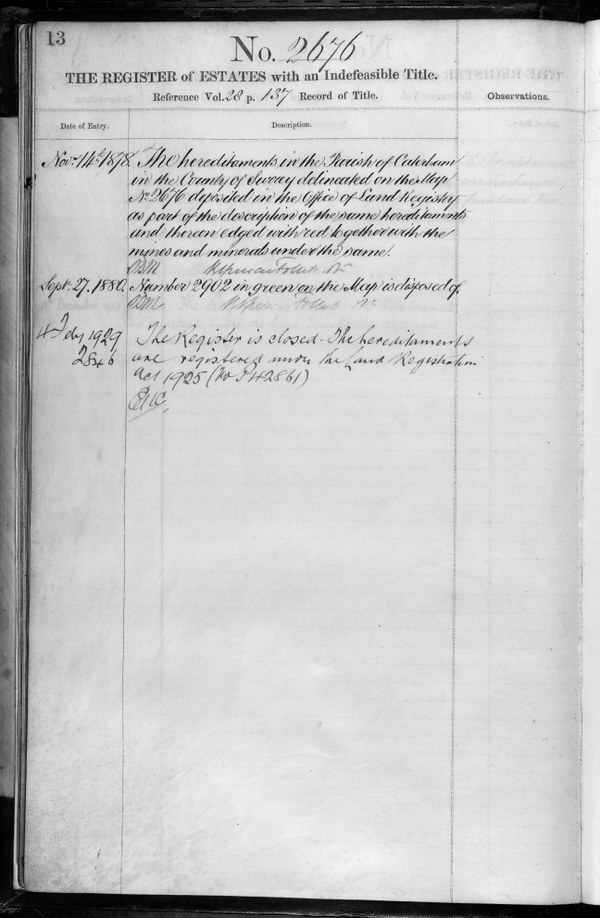 13
No. 2676
THE REGISTER of ESTATES with an Indefeasible Title.
Reference Vol. 28 p. 137 Record of Title.
Observations.
Date of Entry.
Description.
Novr. 14th 1878. The hereditaments in the Parish of Caterham
in the County of Surrey delineated on the Map
No. 2676 deposited in the Office of Land Registry
as part of the description of the same hereditaments
and thereon edged with red together with the
mines and minerals under the same.
Sept. 27. 1880. Number 2902 in green on the Map is disposed of.
4 Feby 1929 The Register is closed. The hereditaments
2846 are registered under the Land Registration
Act 1925 (No